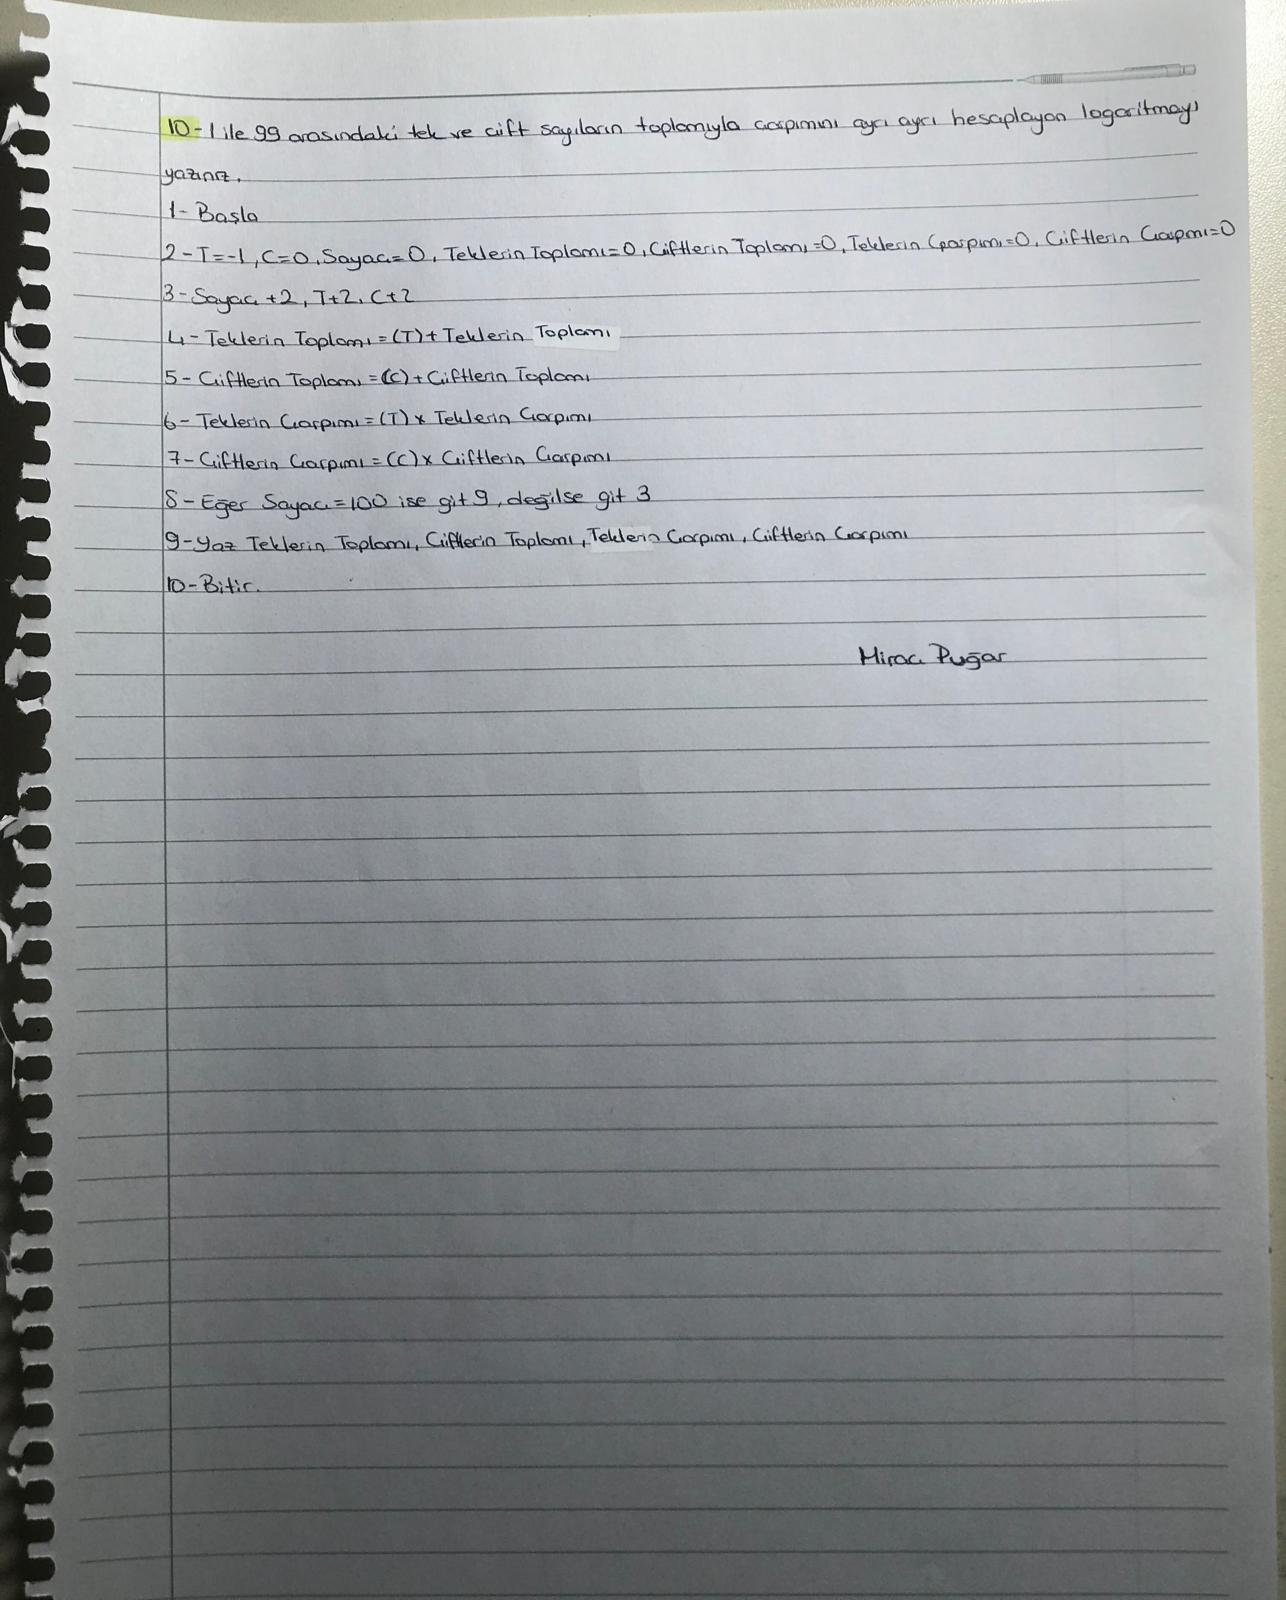 10-1 ile 99 arasındaki tek ve çift sayıların toplamıyla çarpımını ayrı ayrı hesaplayan logaritmayı
yazınız.
1- Başla
2-T=-1, Ç=0, Sayaç=0, Teklerin Toplamı=0, Çiftlerin Toplamı=0, Teklerin Çarpımı=0, Çiftlerin Çarpımı=0
3-Sayaç+2, T+2, Ç+2
4-Teklerin Toplamı=(T)+Teklerin Toplamı
5-Çiftlerin Toplamı=(Ç)+Çiftlerin Toplamı
6-Teklerin Çarpımı=(T)x Teklerin Çarpımı
7-Çiftlerin Çarpımı=(Ç)x Çiftlerin Çarpımı
8-Eğer Sayaç=100 ise git 9, değilse git 3
9-Yaz Teklerin Toplamı, Çiftlerin Toplamı, Teklerin Çarpımı, Çiftlerin Çarpımı
10-Bitir.
Miraç Puğar